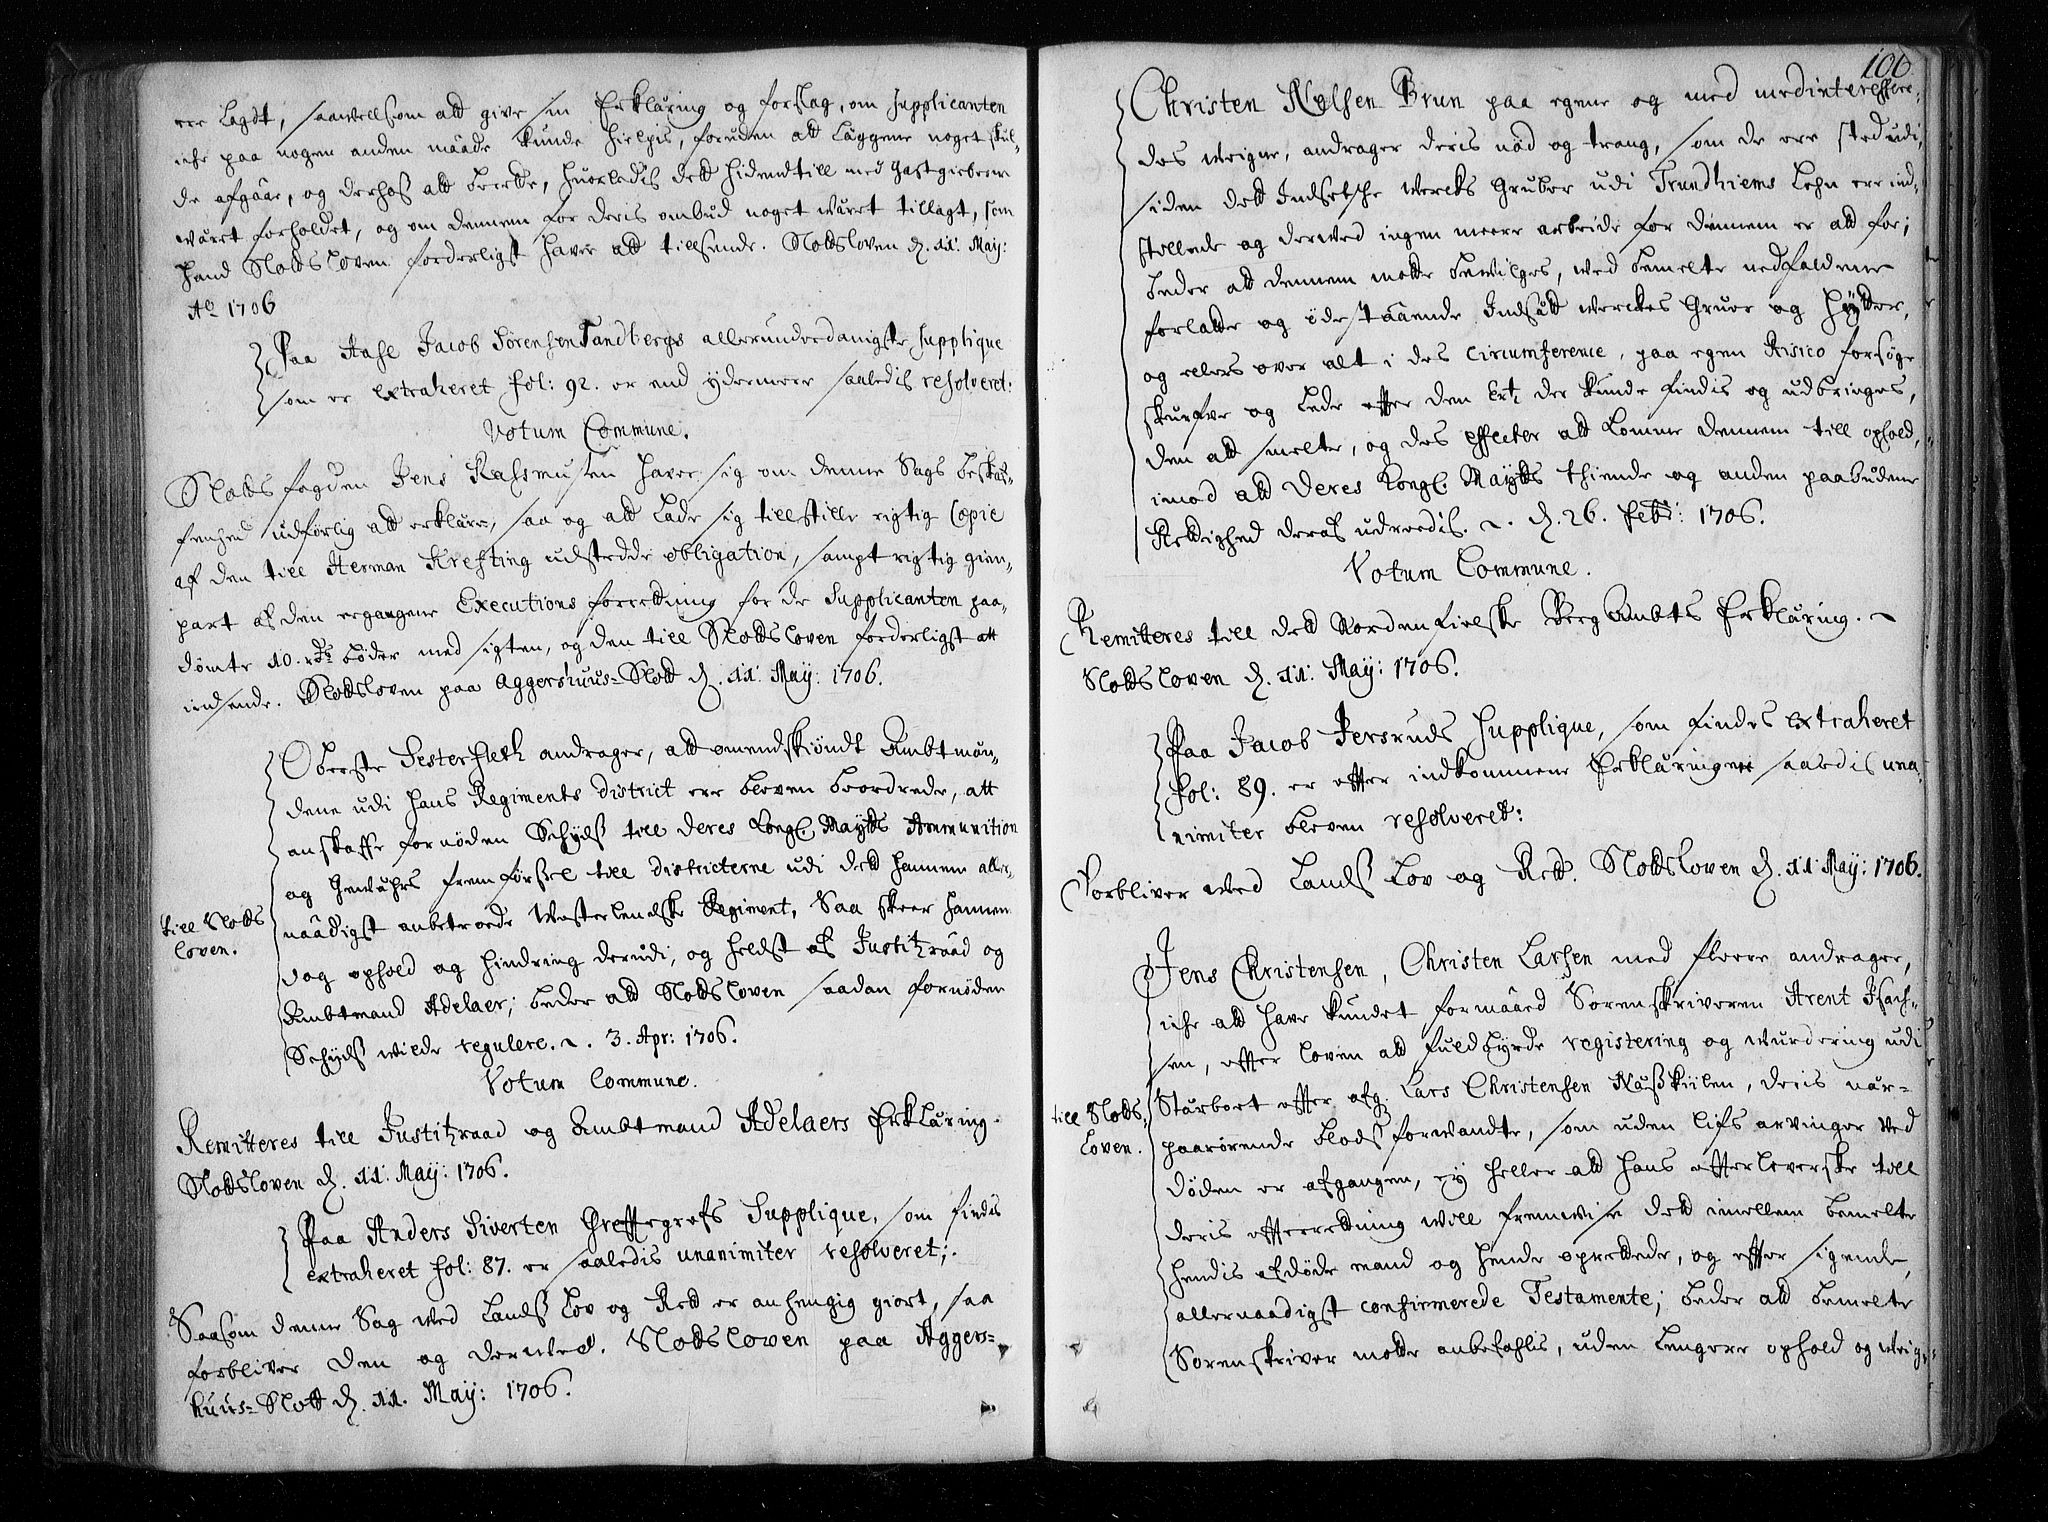 ere lagdt, saavelsom att give sin Erklæring og forslag, om Supplicanten
iche paa nogen anden maade kunde hielpis, foruden att læggene noget skul-
de afgaae, og derhos att berette, huorledis dett hidendtill med Gastgieberne
været forholdet, og om dennem for deris ombud noget været tillagt, som
hand Slotsloven forderligst haver att tillsende. Slotsloven d. 11. May:
Ao 1706
Paa Aase Jacob Sørensen Sandbergs allerunderdanigste Supplique
som er extraheret fol: 92. er end ydermere saaledis resolveret:
Votum Commune.
Slotsfogden Jens Rasmusen haver sig om denne Sags beskaf-
fenhed udførlig att erklære, saa og att lade sig tillstille rigtig Copie
af den till Herman Krefting udstedde obligation, sampt rigtig gien-
part af den ergangene Executions forretning for de Supplicanten paa-
dømte 10. rdr bøder med sigten, og den till Slotsloven forderligst att
indsende. Slotsloven paa Aggershuus-Slott d. 11. May: 1706.
Oberste Sesterfleth andrager, att omendskiøndt Ambtmæn-
dene udi hans Regiments district ere bleven beordrede, att
anskaffe fornøden Schydts till Deres Kongl. Maytts Ammunition
og Gewehrs fremførsel till districterne udi dett hannem aller-
naadigst anbetroede Westerlenske Regiment, Saa skeer hannem
dog ophold og hindring derudi, og heldst af Justitzraad og
Ambtmand Adelaer; beder att Slotsloven saadan fornøden
Schyds wilde regulere. 3. Apr: 1706.
till Slots
loven.
Votum Commune.
Remitteres till Justitzraad og Ambtmand Adelaers Erklæring.
Slotsloven d. 11. May: 1706.
Paa Anders Siverten Greffegrefs Supplique, som findis
extraheret fol: 87. er saaledis unanimiter resolveret;
Saasom denne Sag ved Lands Lov og Rett er anhengig giort, saa
forbliver den og derved. Slotsloven paa Aggers-
huus-Slott d. 11. May: 1706.
100.
Christen Nelsen Brun paa egene og med medinteressere-
des veigne, andrager deris nød og trang, som de ere sted udi,
siden dett Indsetsche Wercks Gruber udi Trundhiems Lehn ere ind-
stellede og derved ingen meere arbeide for dennem er att for;
beder att dennem motte bevilges, ved bemelte nedfaldene
forlatte og ödestaaende Indsätt Werckes Gruer og Hytter,
og ellers over alt i des Circumference, paa egen Risico forsøge
skurfve og lede efter den Ertz der kunde findis og udbringes,
den att smelte, og des effecter att komme dennem till ophold,
imod att Deres Kongl. Maytts Thiende og anden paabudene
Rettighed deraf udredis. d. 26. Febr: 1706.
Votum Commune.
Remitteres till dett Nordenfielske Berg Ambts Erklæring.
Slotsloven d. 11. May: 1706.
Paa Jacob Jersruds Supplique, som findes extraheret
fol: 89. er efter indkommene Erklæringer saaledis una-
nimiter bleven resolveret:
Forbliver ved Lands Lov og Rett. Slotsloven d. 11 May: 1706.
Jens Christensen, Christen Larsen med fleere andrager,
iche att have kundet formaaed Sorenskriveren Arent Isach-
sen, efter loven att fuldbyrde registering og wurdering udi
Stærboet efter afg. Lars Christensen Naußkiilen, deris nær-
paarørende blods forwandte, som uden lifs arvinger ved
døden er afgangen, ey heller att hans efterleverske till
deris efterretning will fremvise dett imellem bemelte
hendis afdøde mand og hende oprettede, og efter sigende,
allernaadigst confirmerede Testamente; beder att bemelte
Sorenskriver motte anbefahlis, uden lengere ophold og weig-
till Slots
loven.